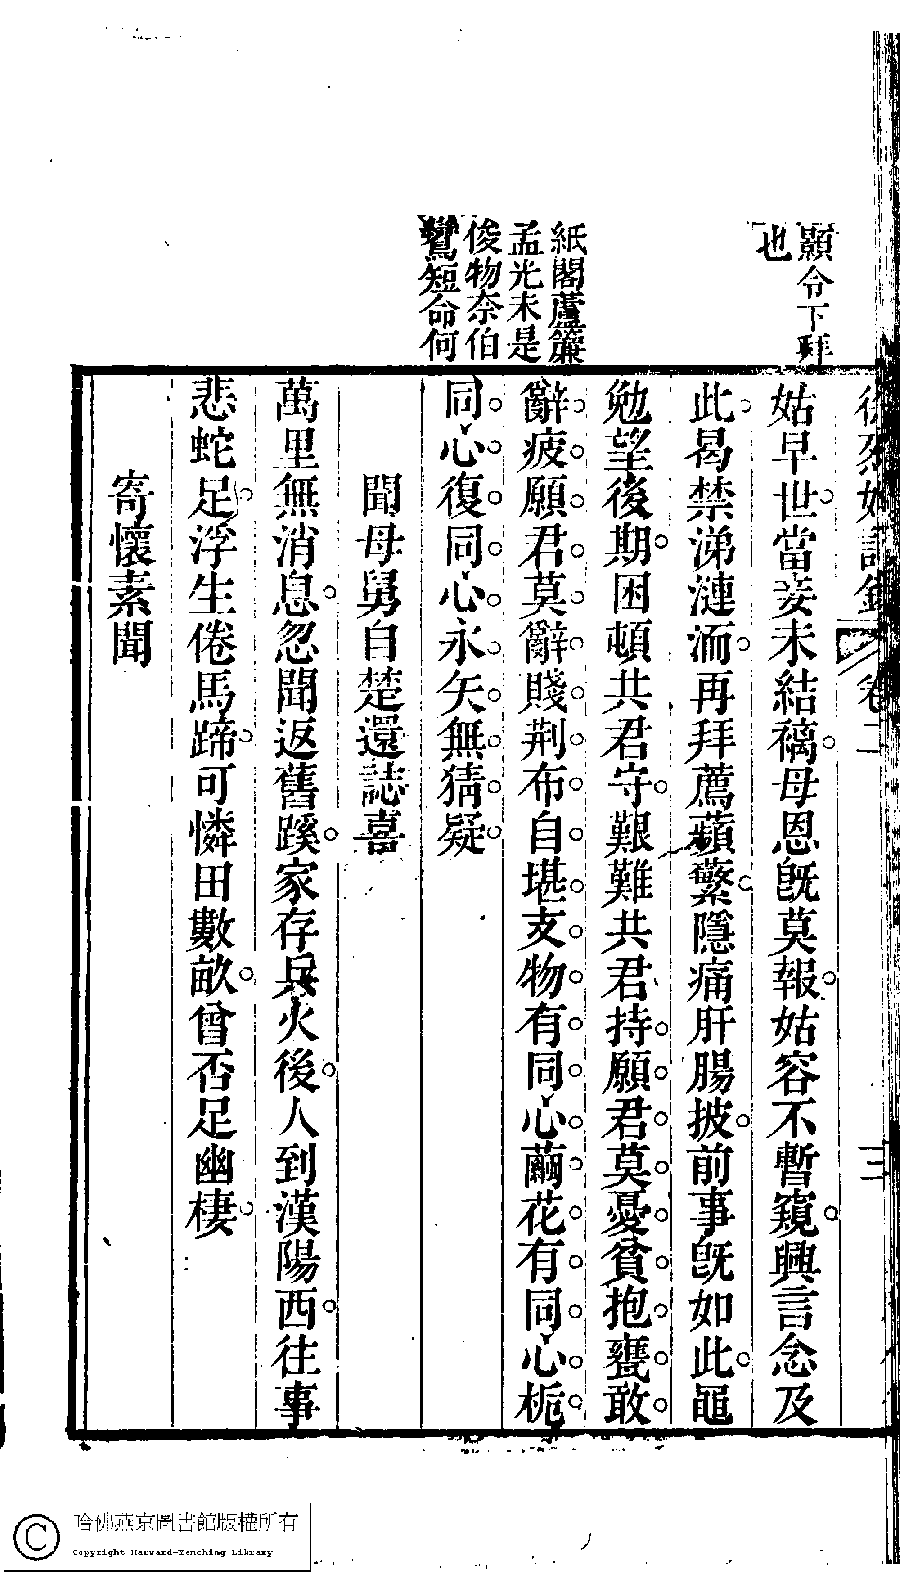 顯令下拜
也
紙閣蘆簾
孟光未是
俊物奈伯
鸞短命何
徐烈婦詩鈔 卷二 三
姑早世當妾未結褵母恩旣莫報姑容不暫窺興言念及
此曷禁涕漣洏再拜薦蘋蘩隱痛肝腸披前事旣如此黽
勉望後期困頓共君守艱難共君持願君莫憂貧抱甕敢
辭疲願君莫辭賤荆布自堪支物有同心繭花有同心梔
同心復同心永矢無猜疑
聞母舅自楚還誌喜
萬里無消息忽聞返舊蹊家存兵火後人到漢陽西往事
悲蛇足浮生倦馬蹄可憐田數畝曾否足幽棲
寄懷素聞
哈佛燕京圖書館版權所有
Copyright Harvard-Yenching Library